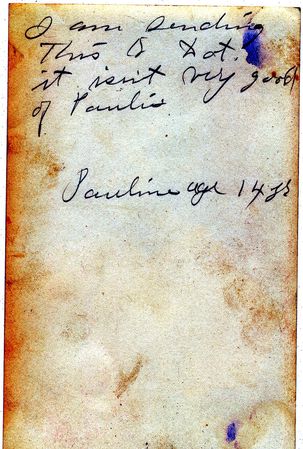 I am sending
This to Dot.
it isn't very good
of Pauline
Pauline age 14